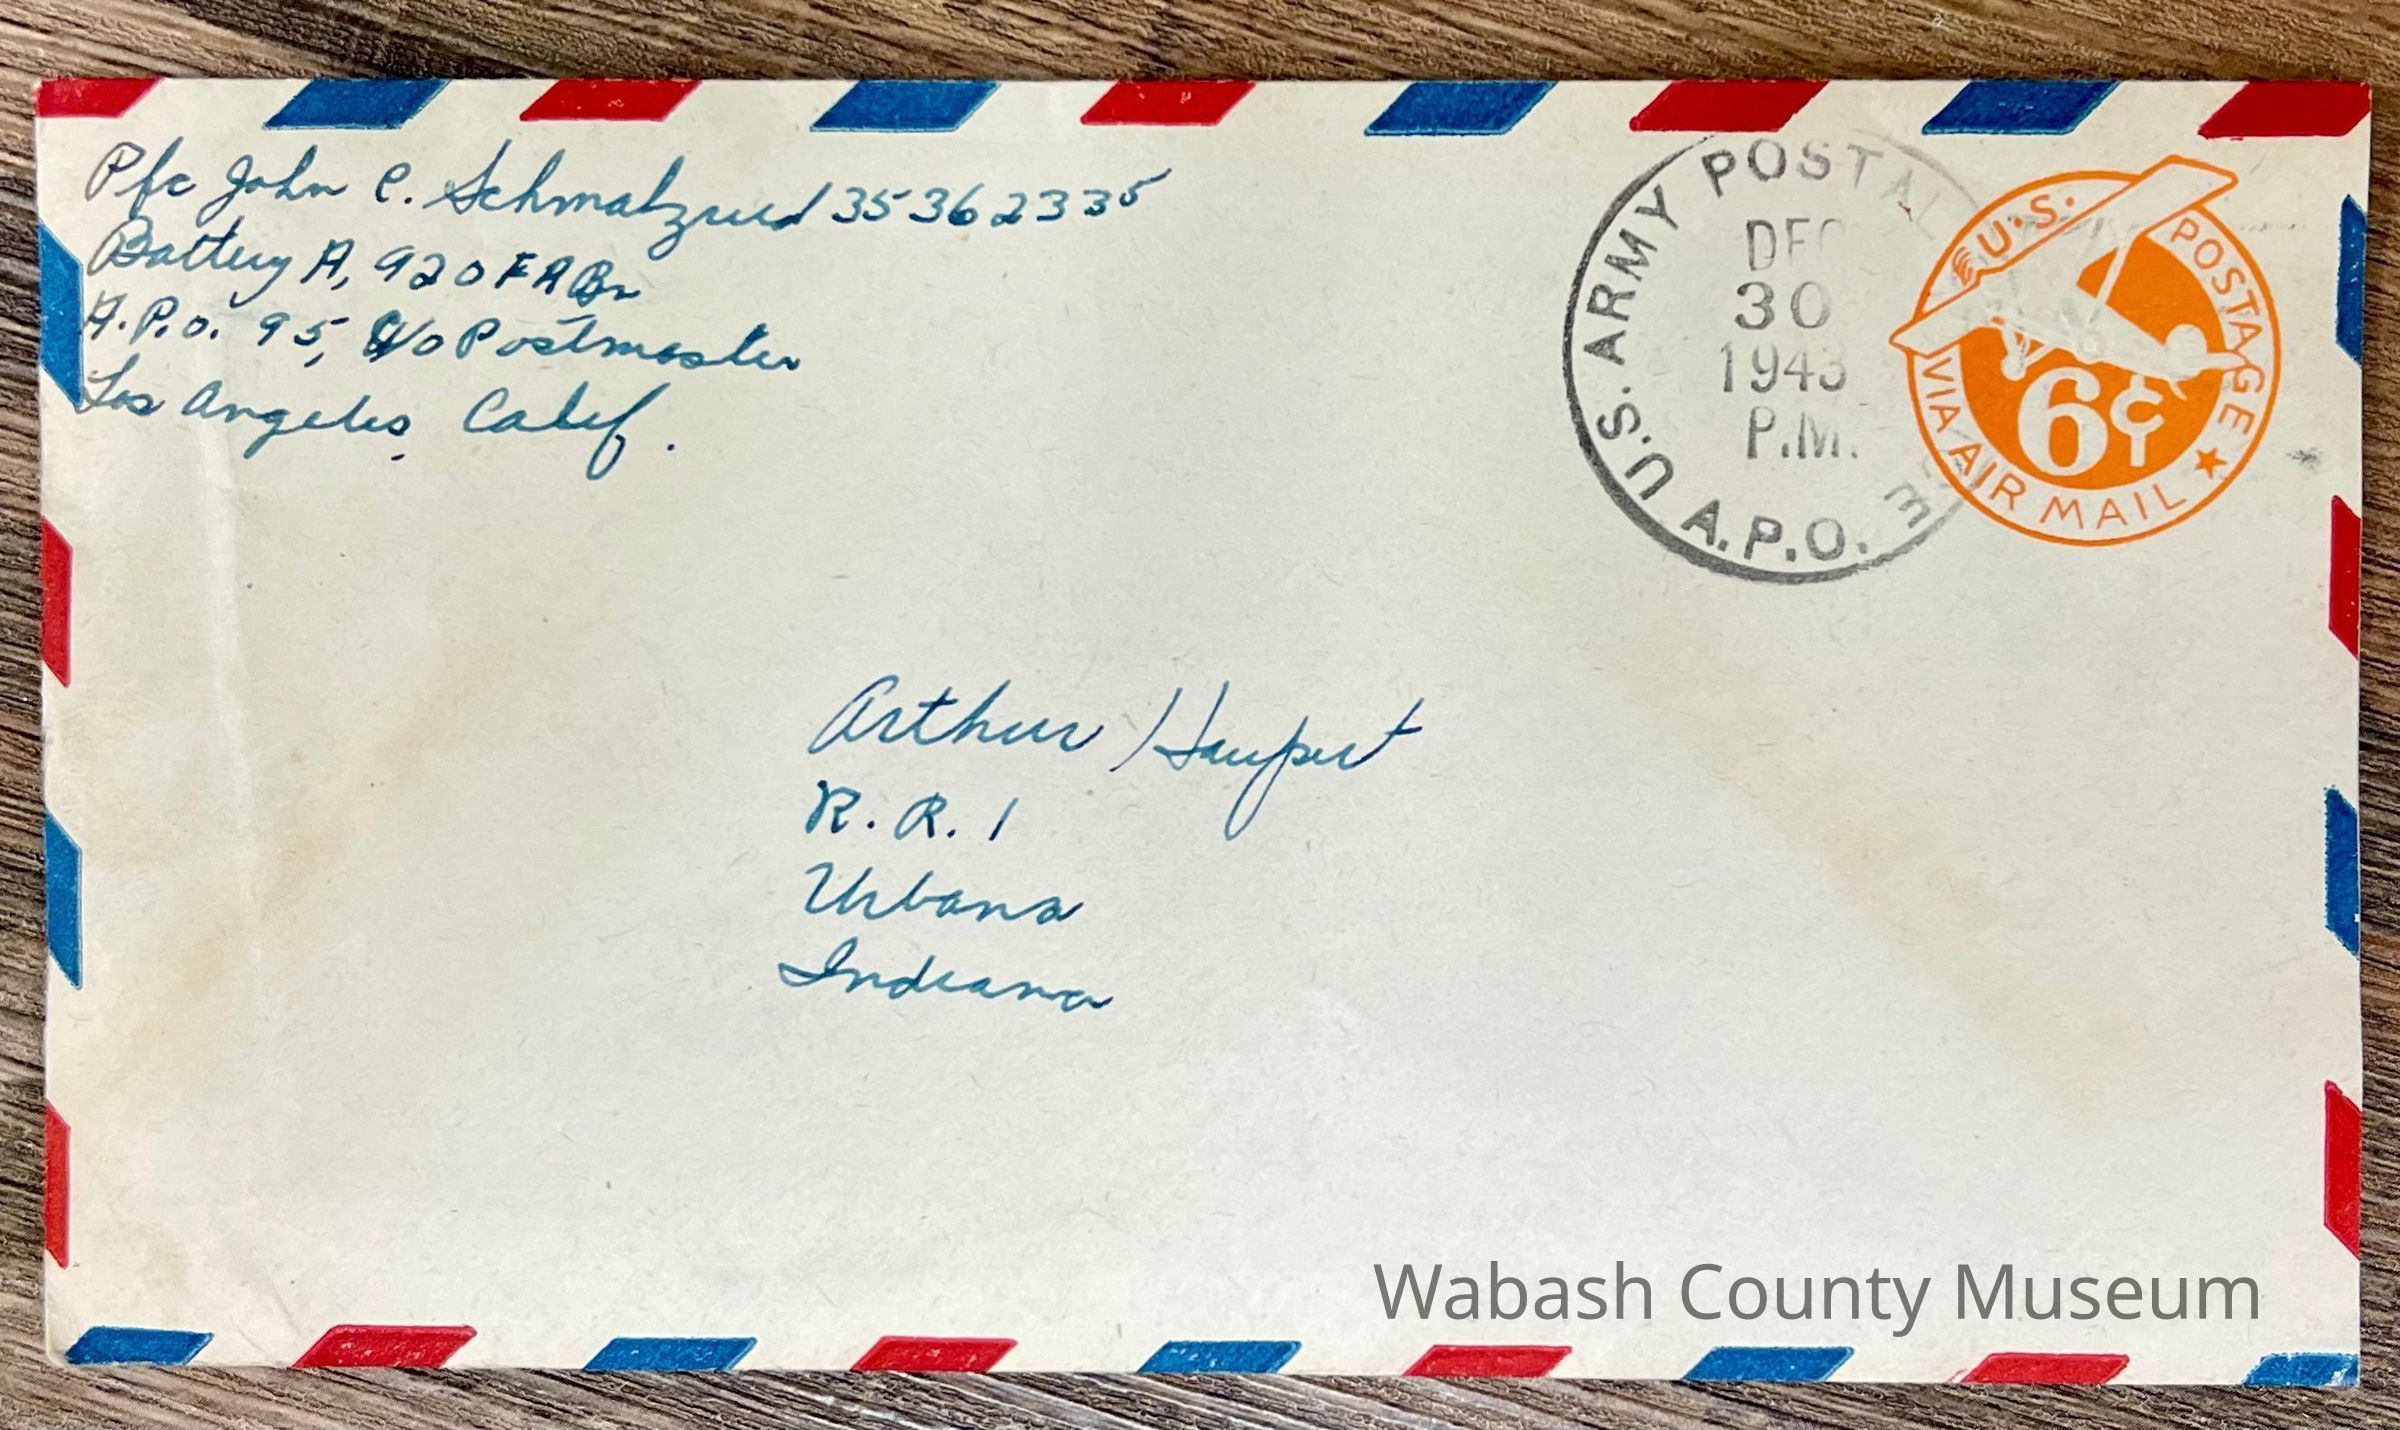 Pfc John C. Schmalzried 35362335
Battery A, 920 FA Bn
A.P.O. 95, c/o Postmaster
Los Angeles, Calif.
U.S. ARMY POSTAL
A.P.O.
DEC
30
1943
P.M.
U.S. POSTAGE
VIA AIR MAIL
6¢
Arthur Haupert
R. R. 1
Urbana
Indiana
Wabash County Museum